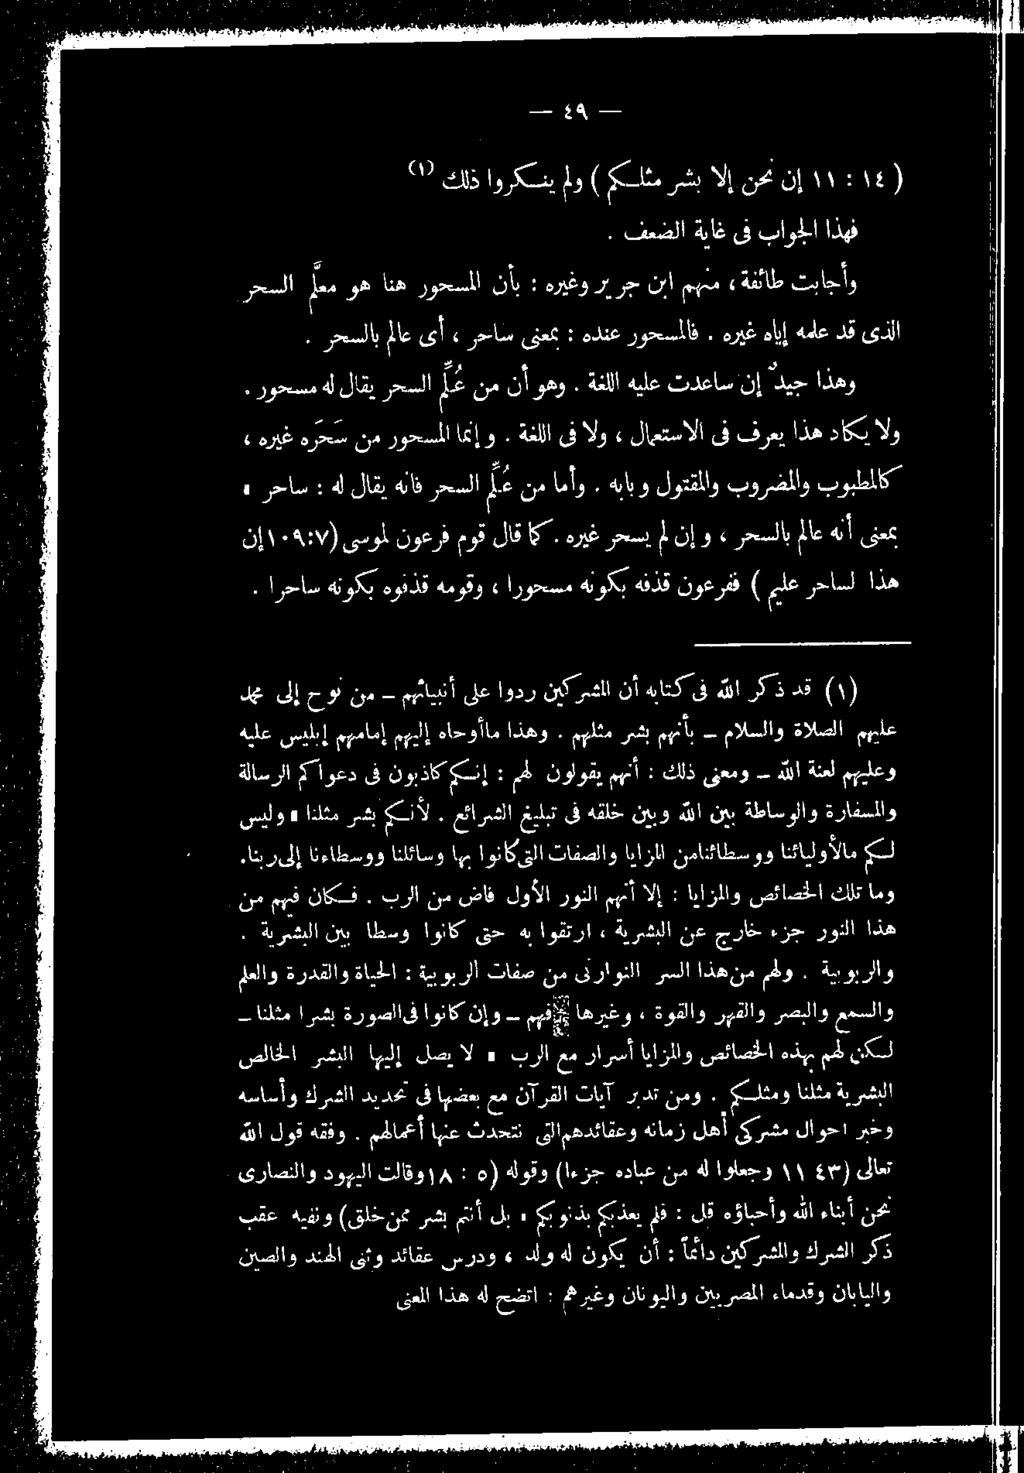 — ٤٩ —
( ١٤ : ١١ إن نحن إلا بشر مثلكم ) ولم ينكروا ذلك (١)
فهذا الجواب فى غاية الضعف .
وأجابت طائفة ، منهم ابن جرير وغيره : بأن المسحور هنا هو معلَّم السحر
الذى قد علمه إياه غيره . فالمسحور عنده : بمعنى ساحر ، أى عالم بالسحر .
وهذا جيدٌ إن ساعدت عليه اللغة . وهو أن من عُلِّم السحر يقال له مسحور .
ولا يكاد هذا يعرف فى الاستعمال ، ولا فى اللغة . وإنما المسحور من سَحَره غيره ،
كالمطبوب والمضروب والمقتول وبابه . وأما من عُلِّم السحر فانه يقال له : ساحر ،
بمعنى أنه عالم بالسحر ، وإن لم يسحر غيره . كما قال قوم فرعون لموسى (٧:١٠٩ إن
هذا لساحر عليم ) ففرعون قذفه بكونه مسحورا ، وقومه قذفوه بكونه ساحرا .
(١) قد ذكر الله فى كتابه أن المشركين ردوا على أنبيائهم - من نوح إلى محمد
عليهم الصلاة والسلام - بأنهم بشر مثلهم . وهذا مما أوحاه إليهم إمامهم إبليس عليه
وعليهم لعنة الله - ومعنى ذلك : أنهم يقولون لهم : إنكم كاذبون فى دعواكم الرسالة
والسفارة والوساطة بين الله وبين خلقه فى تبليغ الشرائع . لأنكم بشر مثلنا ، وليس
لكم ما لأوليائنا ووسطائنا من المزايا والصفات التى كانوا بها وسائلنا ووسطاءنا إلى ربنا .
وما تلك الخصائص والمزايا : إلا أنهم النور الأول فاض من الرب . فكان فيهم من
هذا النور جزء خارج عن البشرية ، ارتقوا به حتى كانوا وسطا بين البشرية .
والربوبية . ولهم من هذا السر النورانى من صفات الربوبية : الحياة والقدرة والعلم
والسمع والبصر والقهر والقوة ، وغيرها فهم - وإن كانوا فى الصورة بشرا مثلنا -
لكن لهم بهذه الخصائص والمزايا أسرار مع الرب ، لا يصل إليها البشر الخالص
البشرية مثلنا ومثلكم . ومن تدبر آيات القرآن مع بعضها فى تحديد الشرك وأساسه
وخبر احوال مشركى أهل زمانه وعقائدهم التى تتحدث عنها أعمالهم . وفقه قول الله
تعالى (٤٣ ١١ وجعلوا له من عباده جزءا) وقوله (٥ : ١٨ وقالت اليهود والنصارى
نحن أبناء الله وأحباؤه قل : فلم يعذبكم بذنوبكم ، بل أنتم بشر ممن خلق) ونفيه عقب
ذكر الشرك والمشركين دائماً : أن يكون له ولد ، ودرس عقائد وثنى الهند والصين
واليابان وقدماء المصريين واليونان وغيرهم : اتضح له هذا المعنى